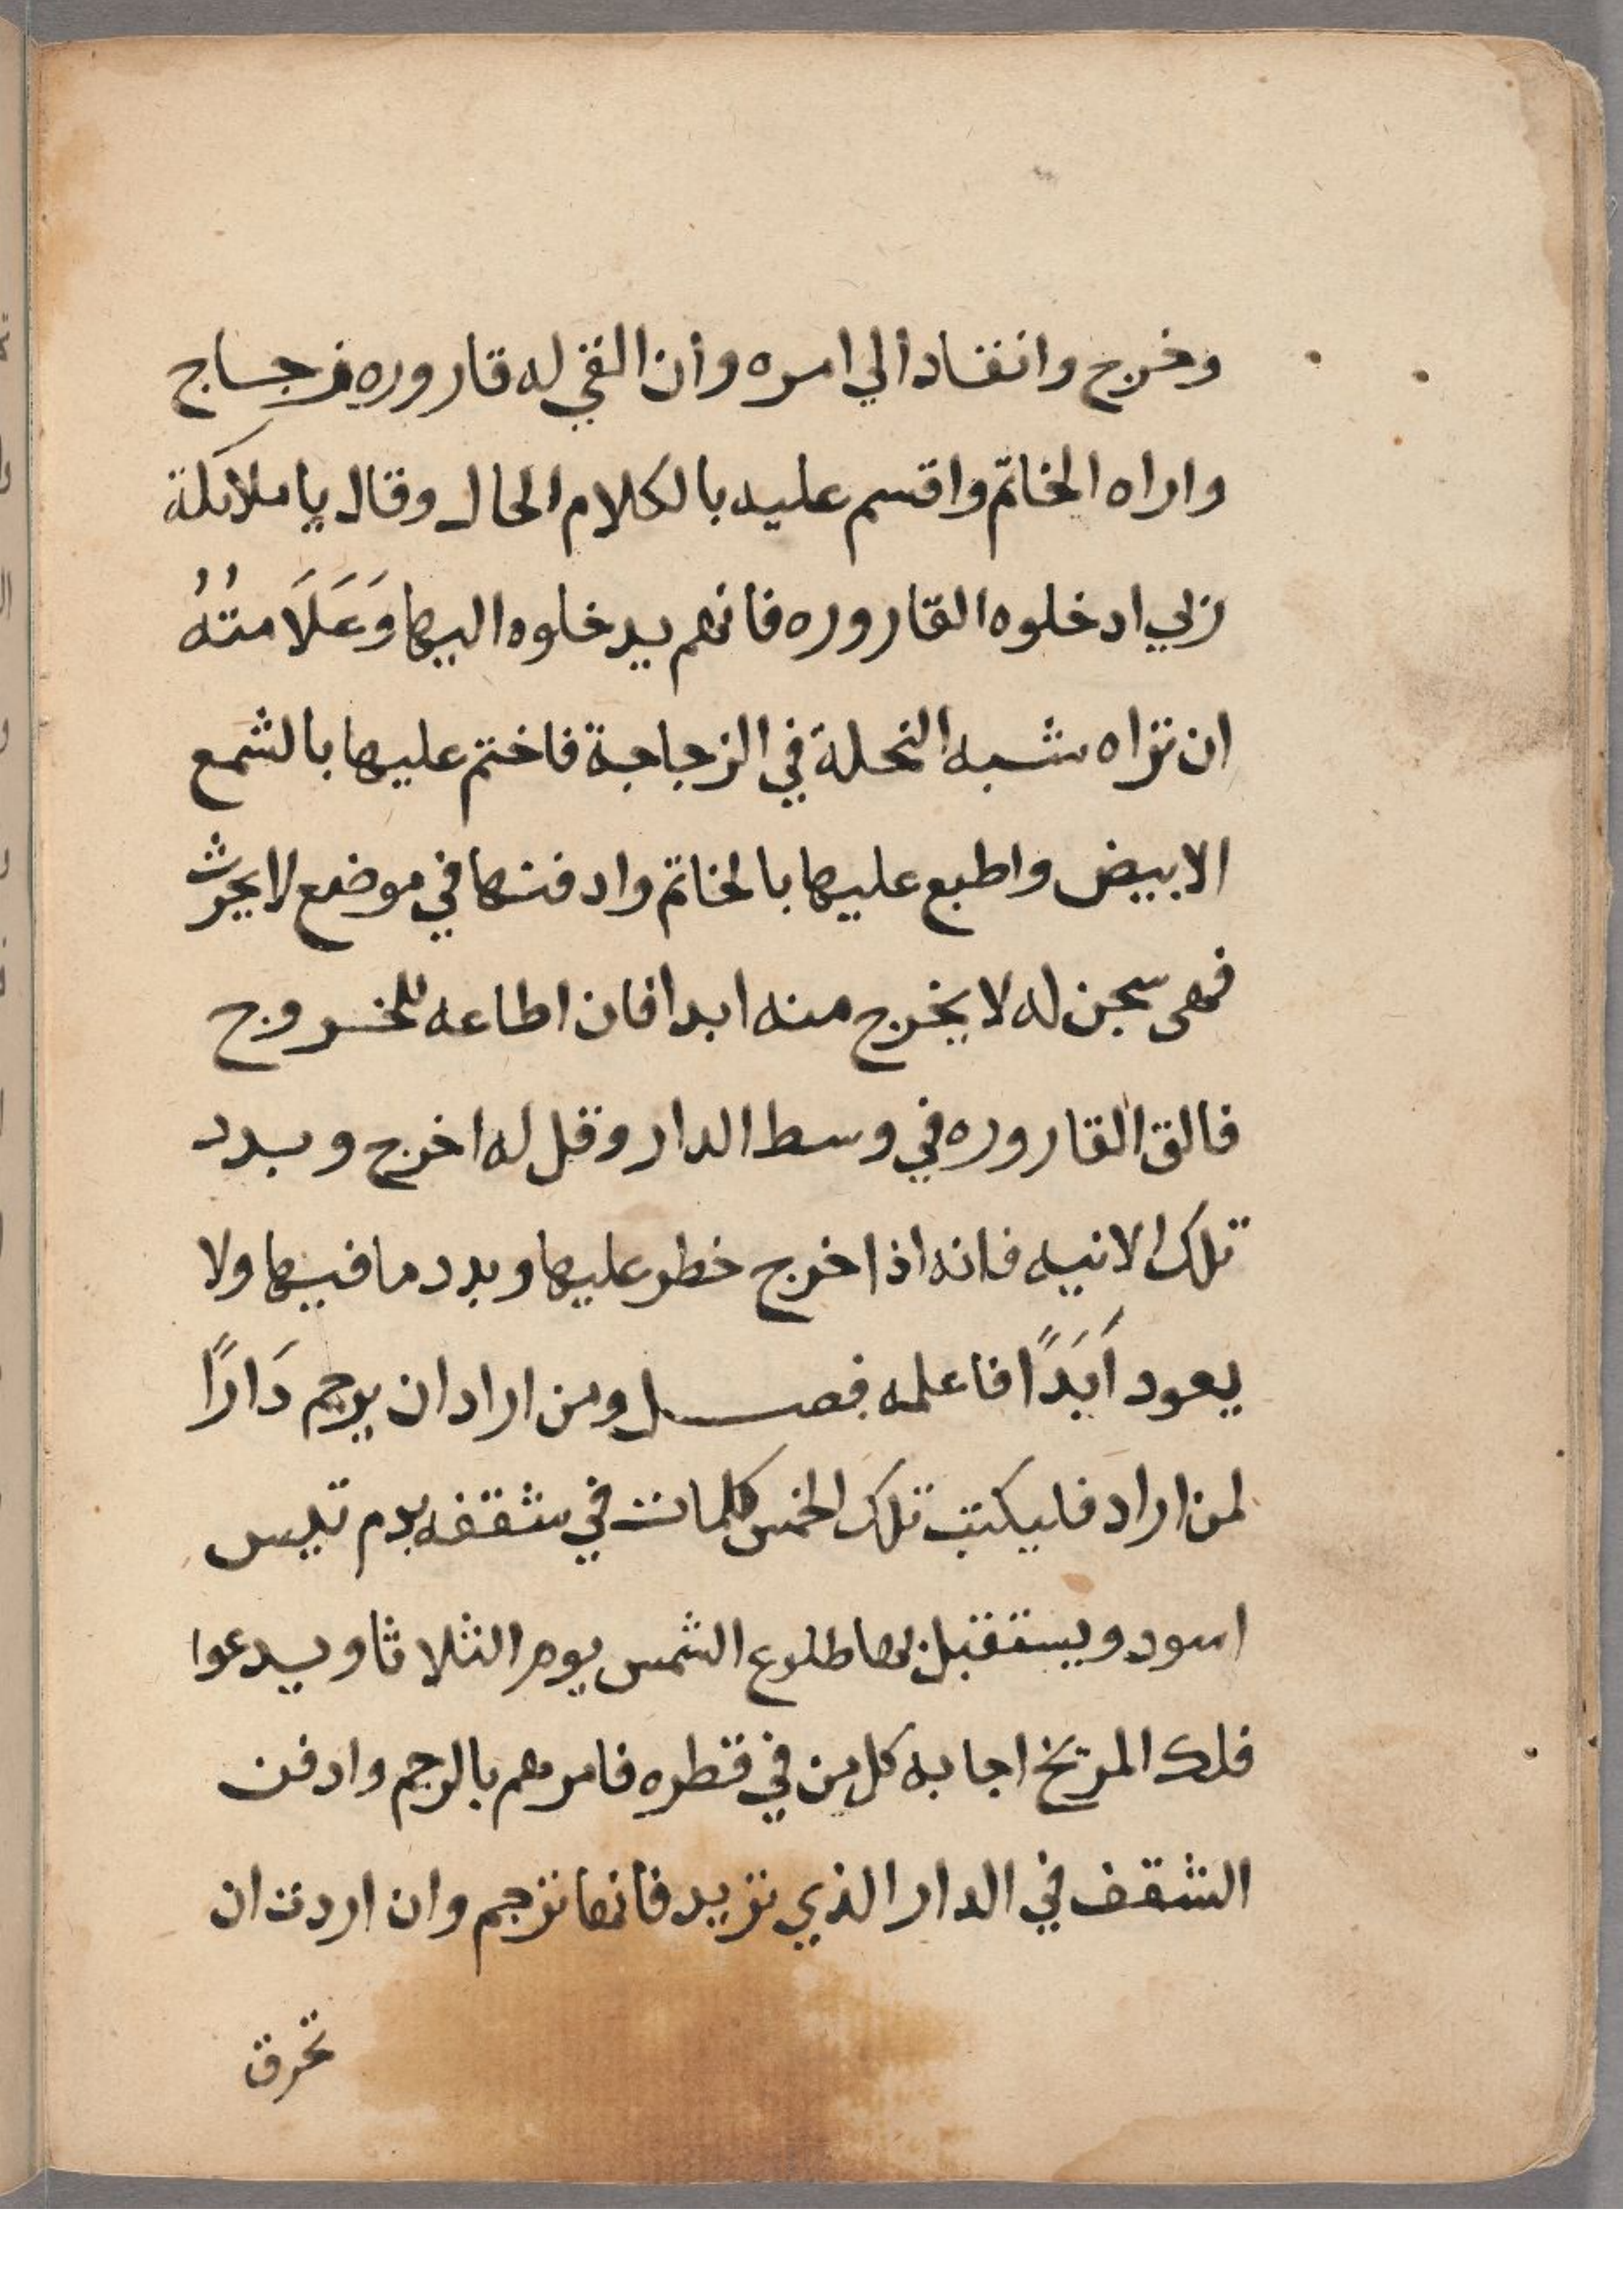 وخرج وانقاد الي امره وان القي له قاروره زجاج
واراه الخاتم واقسم عليه بالكلام الحال وقال يا ملايكة
ربي ادخلوه القاروره فانهم يدخلوه اليها وَعَلَامتُهُ
ان تراه شبه النحلة في الزجاجة فاختم عليها بالشمع
الابيض واطبع عليها بالخاتم وادفنها في موضع لا يحرث
فهى سجن له لا يخرج منه ابدا فان اطاعه للخروج
فالق القاروره في وسط الدار وقل له اخرج وبدد
تلك الانيه فانه اذا خرج خطر عليها وبدد ما فيها ولا
يعود اَبَدًا فاعلمه فصل ومن اراد ان يرجم دَارًا
لمن اراد فليكتب تلك الخمس كلمات في شقفه بدم تيس
اسود ويستقبل بها طلوع الشمس يوم الثلاثا ويدعوا
فلك المريخ اجابه كل من في قطره فامرهم بالرجم وادفن
الشقف في الدار الذي تريد فانها ترجم وان اردت ان
تحرق